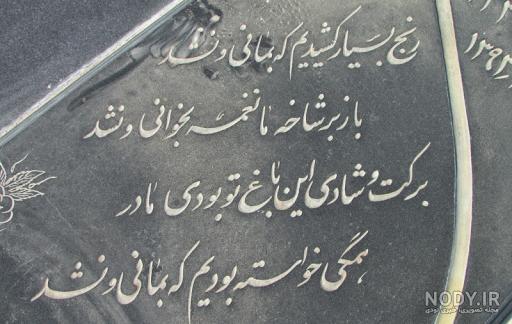 رنج بسیار کشیدیم که بمانی و نشد
باز بر شاخه ما نغمه بخوانی و نشد
برکت و شادی این باغ تو بودی مادر
همگی خواسته بودیم که بمانی و نشد
NODY.IR
مجله تصویری، خبری نودی